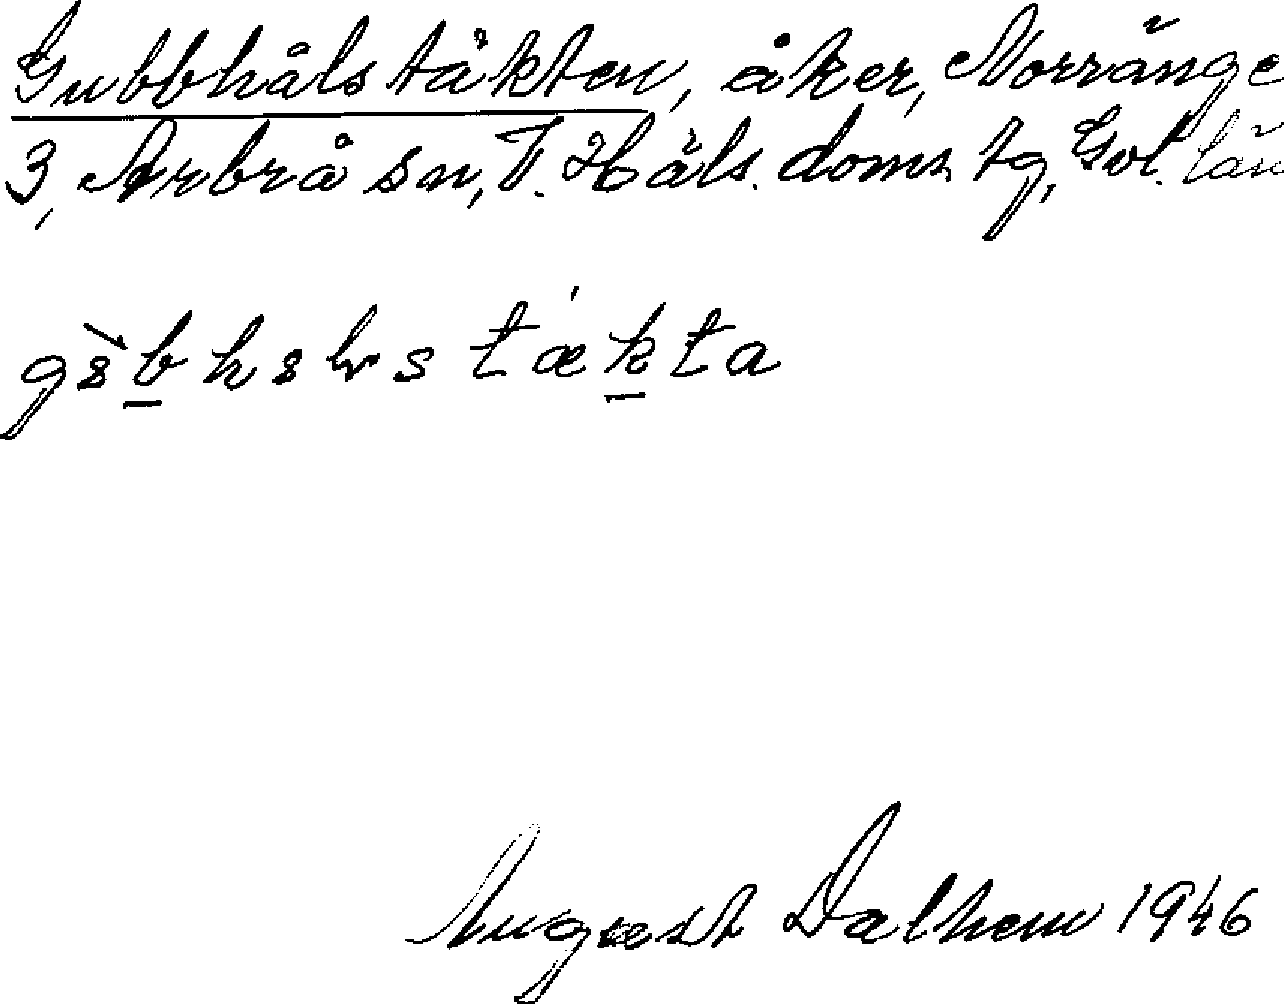 Gubbhålstäkten, åker, Norränge
3, Arbrå sn, V. Häls. doms tg, Gvl. län
August Dalhem 1946